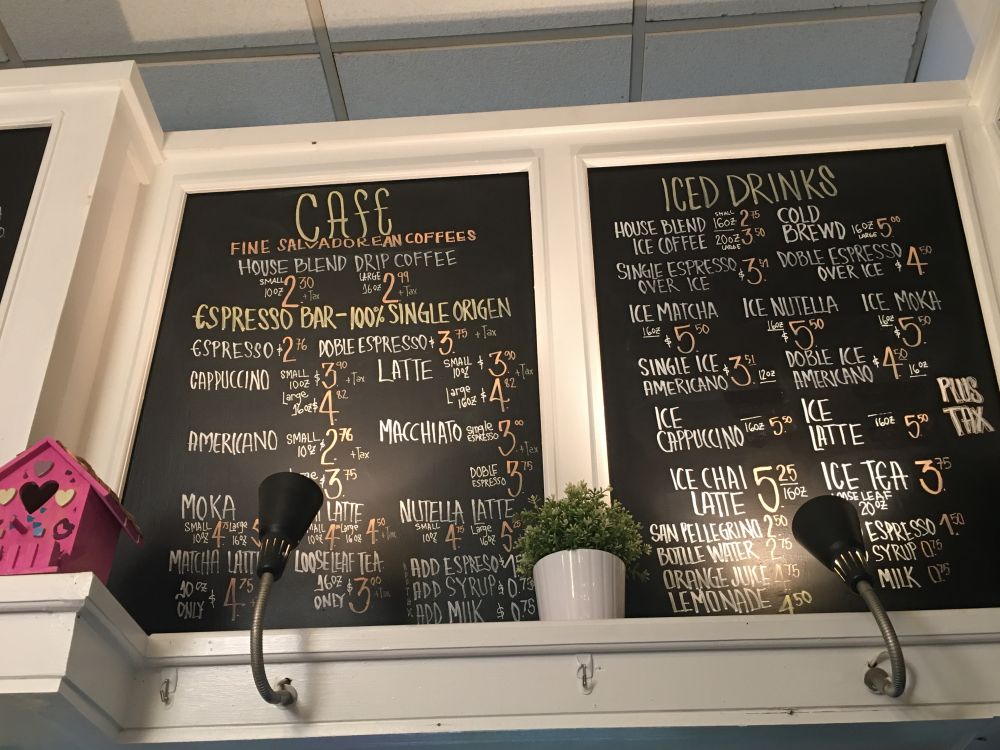 CAFE
FINE SALVADOREAN COFFEES
HOUSE BLEND DRIP COFFEE
SMALL 10oz 2.30 +Tax LARGE 16oz 2.99 +Tax
ESPRESSO BAR-100% SINGLE ORIGEN
ESPRESSO $2.76 DOBLE ESPRESSO $3.75 +Tax
CAPPUCCINO SMALL 10oz $3.90 +Tax
Large 16oz $4.82
LATTE SMALL 10oz $3.90 +Tax
Large 16oz $4.82
AMERICANO SMALL 10oz $2.76 +Tax
3.75
MACCHIATO Single ESPRESSO 3.00 +Tax
DOBLE ESPRESSO 3.75
MOKA
SMALL 10oz 4.75 Large 16oz
LATTE
10oz Large 16oz 4.50
NUTELLA LATTE
SMALL 10oz 4.75 Large 16oz
MATCHA LATTE
ONLY $4.75
LOOSE LEAF TEA
16oz ONLY $3.00 +Tax
ADD ESPRESO
ADD SYRUP $0.75
ADD MILK $0.75
ICED DRINKS
HOUSE BLEND ICE COFFEE SMALL 16oz 2.75
20oz LARGE 3.50
COLD BREWD 16oz LARGE 5.00
SINGLE ESPRESSO OVER ICE
DOBLE ESPRESSO OVER ICE $4.50
ICE MATCHA 16oz $5.50
ICE NUTELLA 16oz $5.50
ICE MOKA 16oz $5.50
SINGLE ICE AMERICANO $3.51 12oz
DOBLE ICE AMERICANO $4.50 16oz
PLUS TAX
ICE CAPPUCCINO 16oz 5.50
ICE LATTE 16oz 5.50
ICE CHAI LATTE 5.25 16oz
ICE TEA 3.75
LOOSE LEAF
20oz
SAN PELLEGRINO 2.50
BOTTLE WATER 2.75
ORANGE JUICE 4.75
LEMONADE 4.50
ESPRESSO 1.50
SYRUP 0.75
MILK 0.75